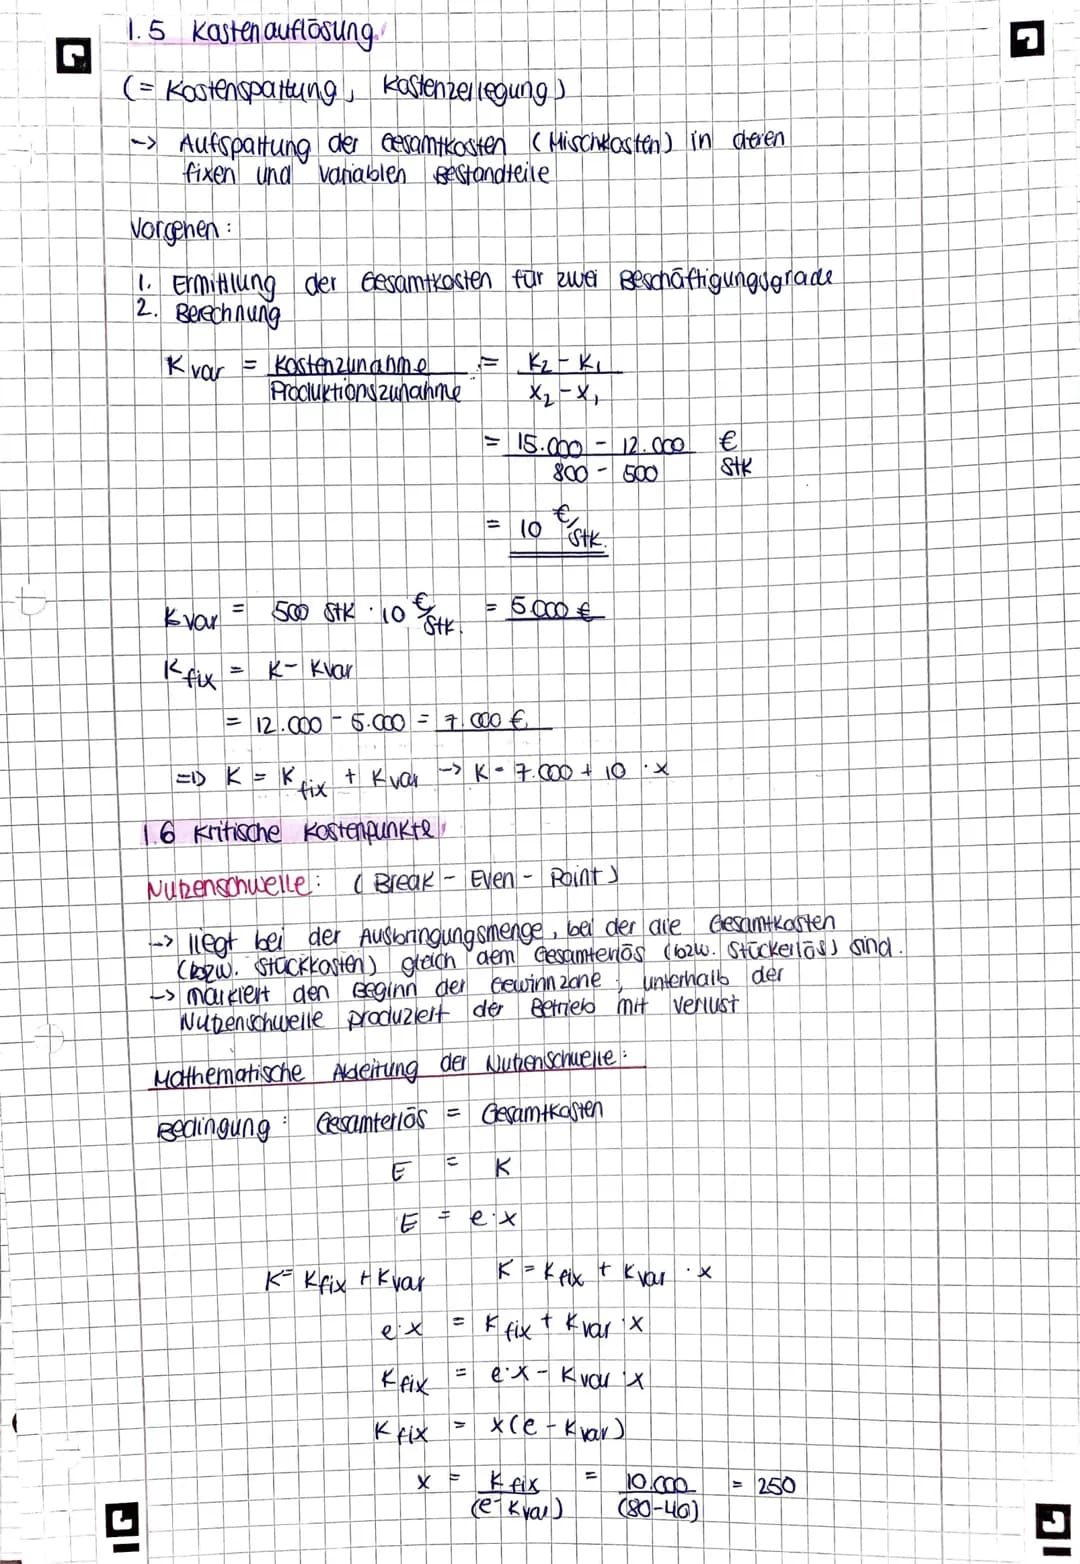 1.5 Kostenauflösung
(= Kostenspaltung, Kostenzerlegung)
-> Aufspaltung der Gesamtkosten (Mischkosten) in deren
fixen und variablen Bestandteile
Vorgehen:
1. Ermittlung der Gesamtkosten für zwei Beschäftigungsgrade
2. Berechnung
K var = Kostenzunahme / Produktionszunahme = K₂ - K₁ / x₂ - x₁
= 15.000 - 12.000 / 800 - 500 € / Stk
= 10 €/Stk.
K var = 500 Stk · 10 €/Stk. = 5.000 €
K fix = K - Kvar
= 12.000 - 5.000 = 7.000 €
=> K = K fix + K var -> K = 7.000 + 10 · x
1.6 Kritische Kostenpunkte
Nutzenschwelle: (Break - Even - Point)
-> liegt bei der Ausbringungsmenge, bei der die Gesamtkosten
(bzw. Stückkosten) gleich dem Gesamterlös (bzw. Stückerlös) sind.
-> markiert den Beginn der Gewinnzone, unterhalb der
Nutzenschwelle produziert der Betrieb mit Verlust
Mathematische Ableitung der Nutzenschwelle:
Bedingung: Gesamterlös = Gesamtkosten
E = K
E = e·x
K = Kfix + Kvar K = K fix + K var · x
e·x = K fix + K var · x
K fix = e·x - K var · x
K fix = x(e - K var)
x = K fix / (e - Kvar) = 10.000 / (80-40) = 250